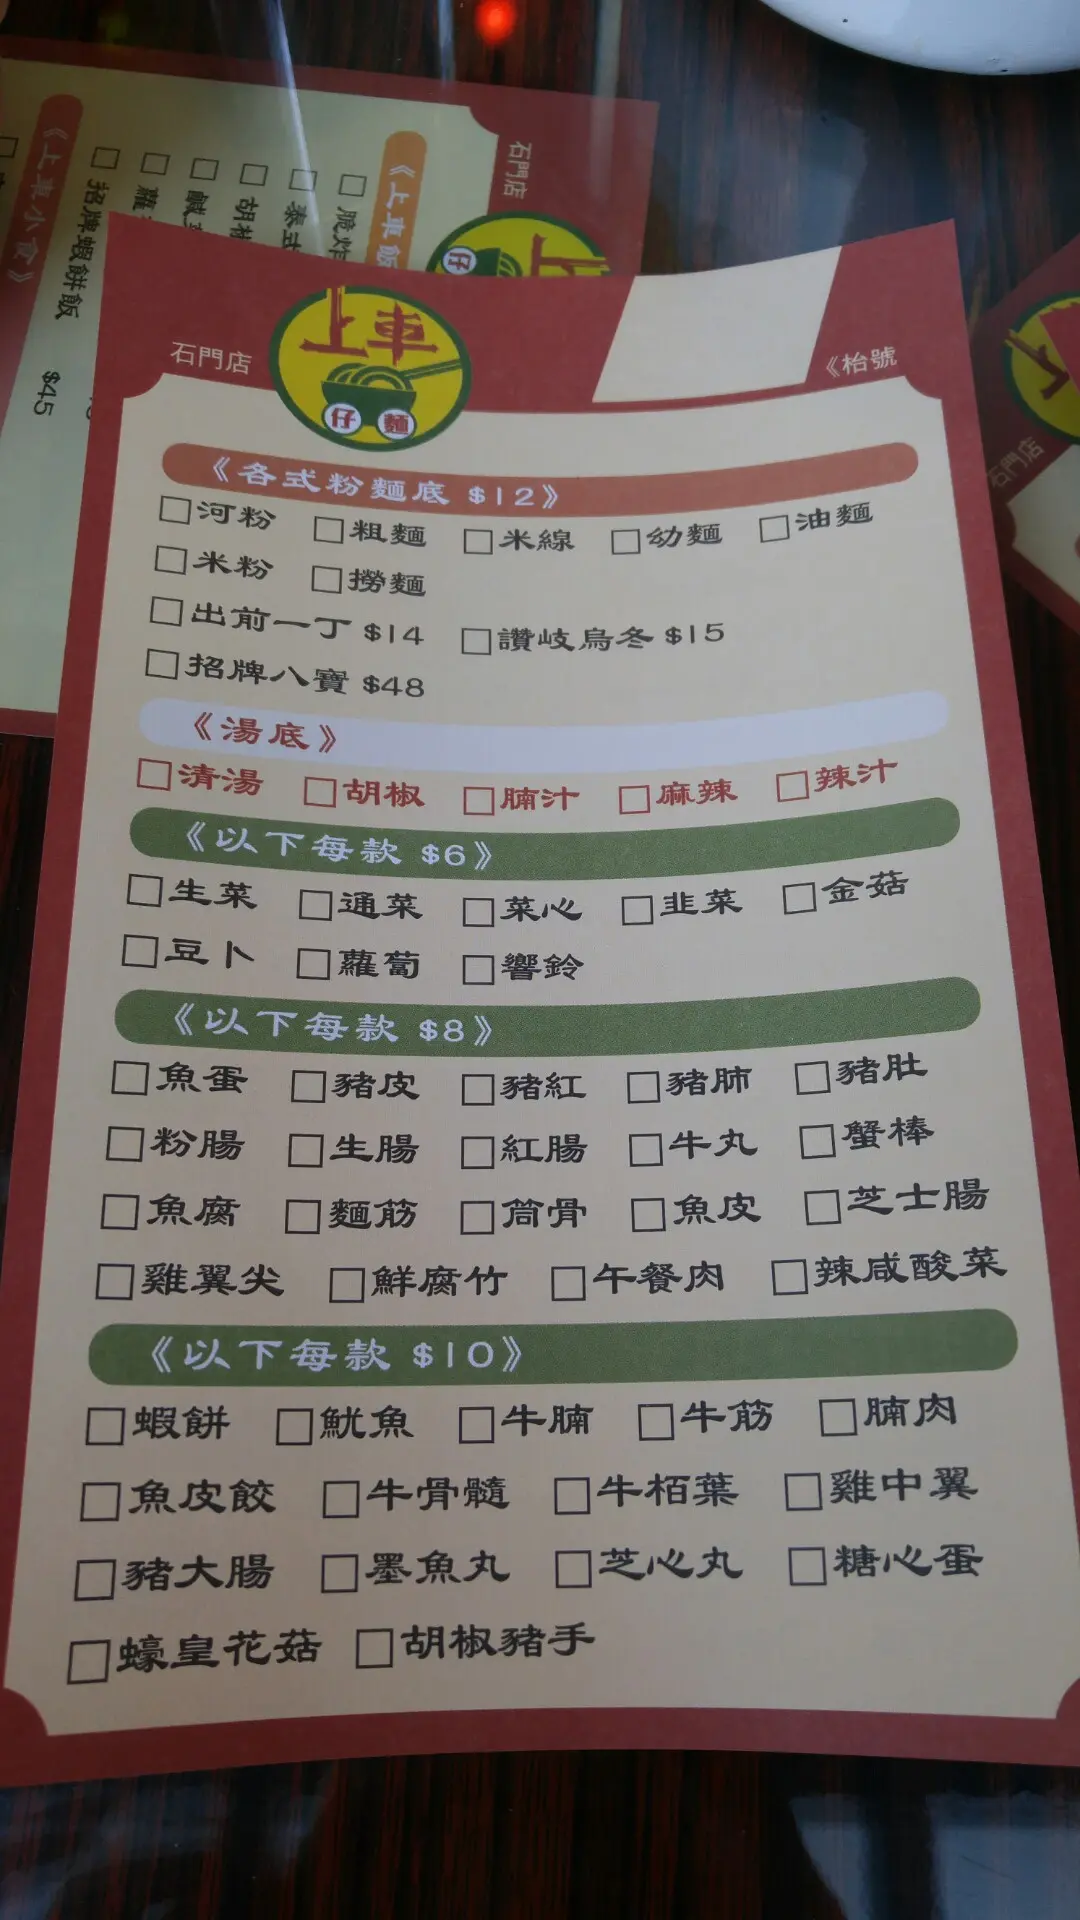 石門店
《上車飯
脆炸
泰式
胡椒
鹹
蘿
招牌蝦餅飯 $45
《上車小食》
石門店
上車
仔麵
《枱號
《各式粉麵底 $12》
□河粉 □粗麵 □米線 □幼麵 □油麵
□米粉 □撈麵
□出前一丁 $14 □讚岐烏冬 $15
□招牌八寶 $48
《湯底》
□清湯 □胡椒 □腩汁 □麻辣 □辣汁
《以下每款 $6》
□生菜 □通菜 □菜心 □韭菜 □金菇
□豆卜 □蘿蔔 □響鈴
《以下每款 $8》
□魚蛋 □豬皮 □豬紅 □豬肺 □豬肚
□粉腸 □生腸 □紅腸 □牛丸 □蟹棒
□魚腐 □麵筋 □筒骨 □魚皮 □芝士腸
□雞翼尖 □鮮腐竹 □午餐肉 □辣咸酸菜
《以下每款 $10》
□蝦餅 □魷魚 □牛腩 □牛筋 □腩肉
□魚皮餃 □牛骨髓 □牛栢葉 □雞中翼
□豬大腸 □墨魚丸 □芝心丸 □糖心蛋
□蠔皇花菇 □胡椒豬手
石門店